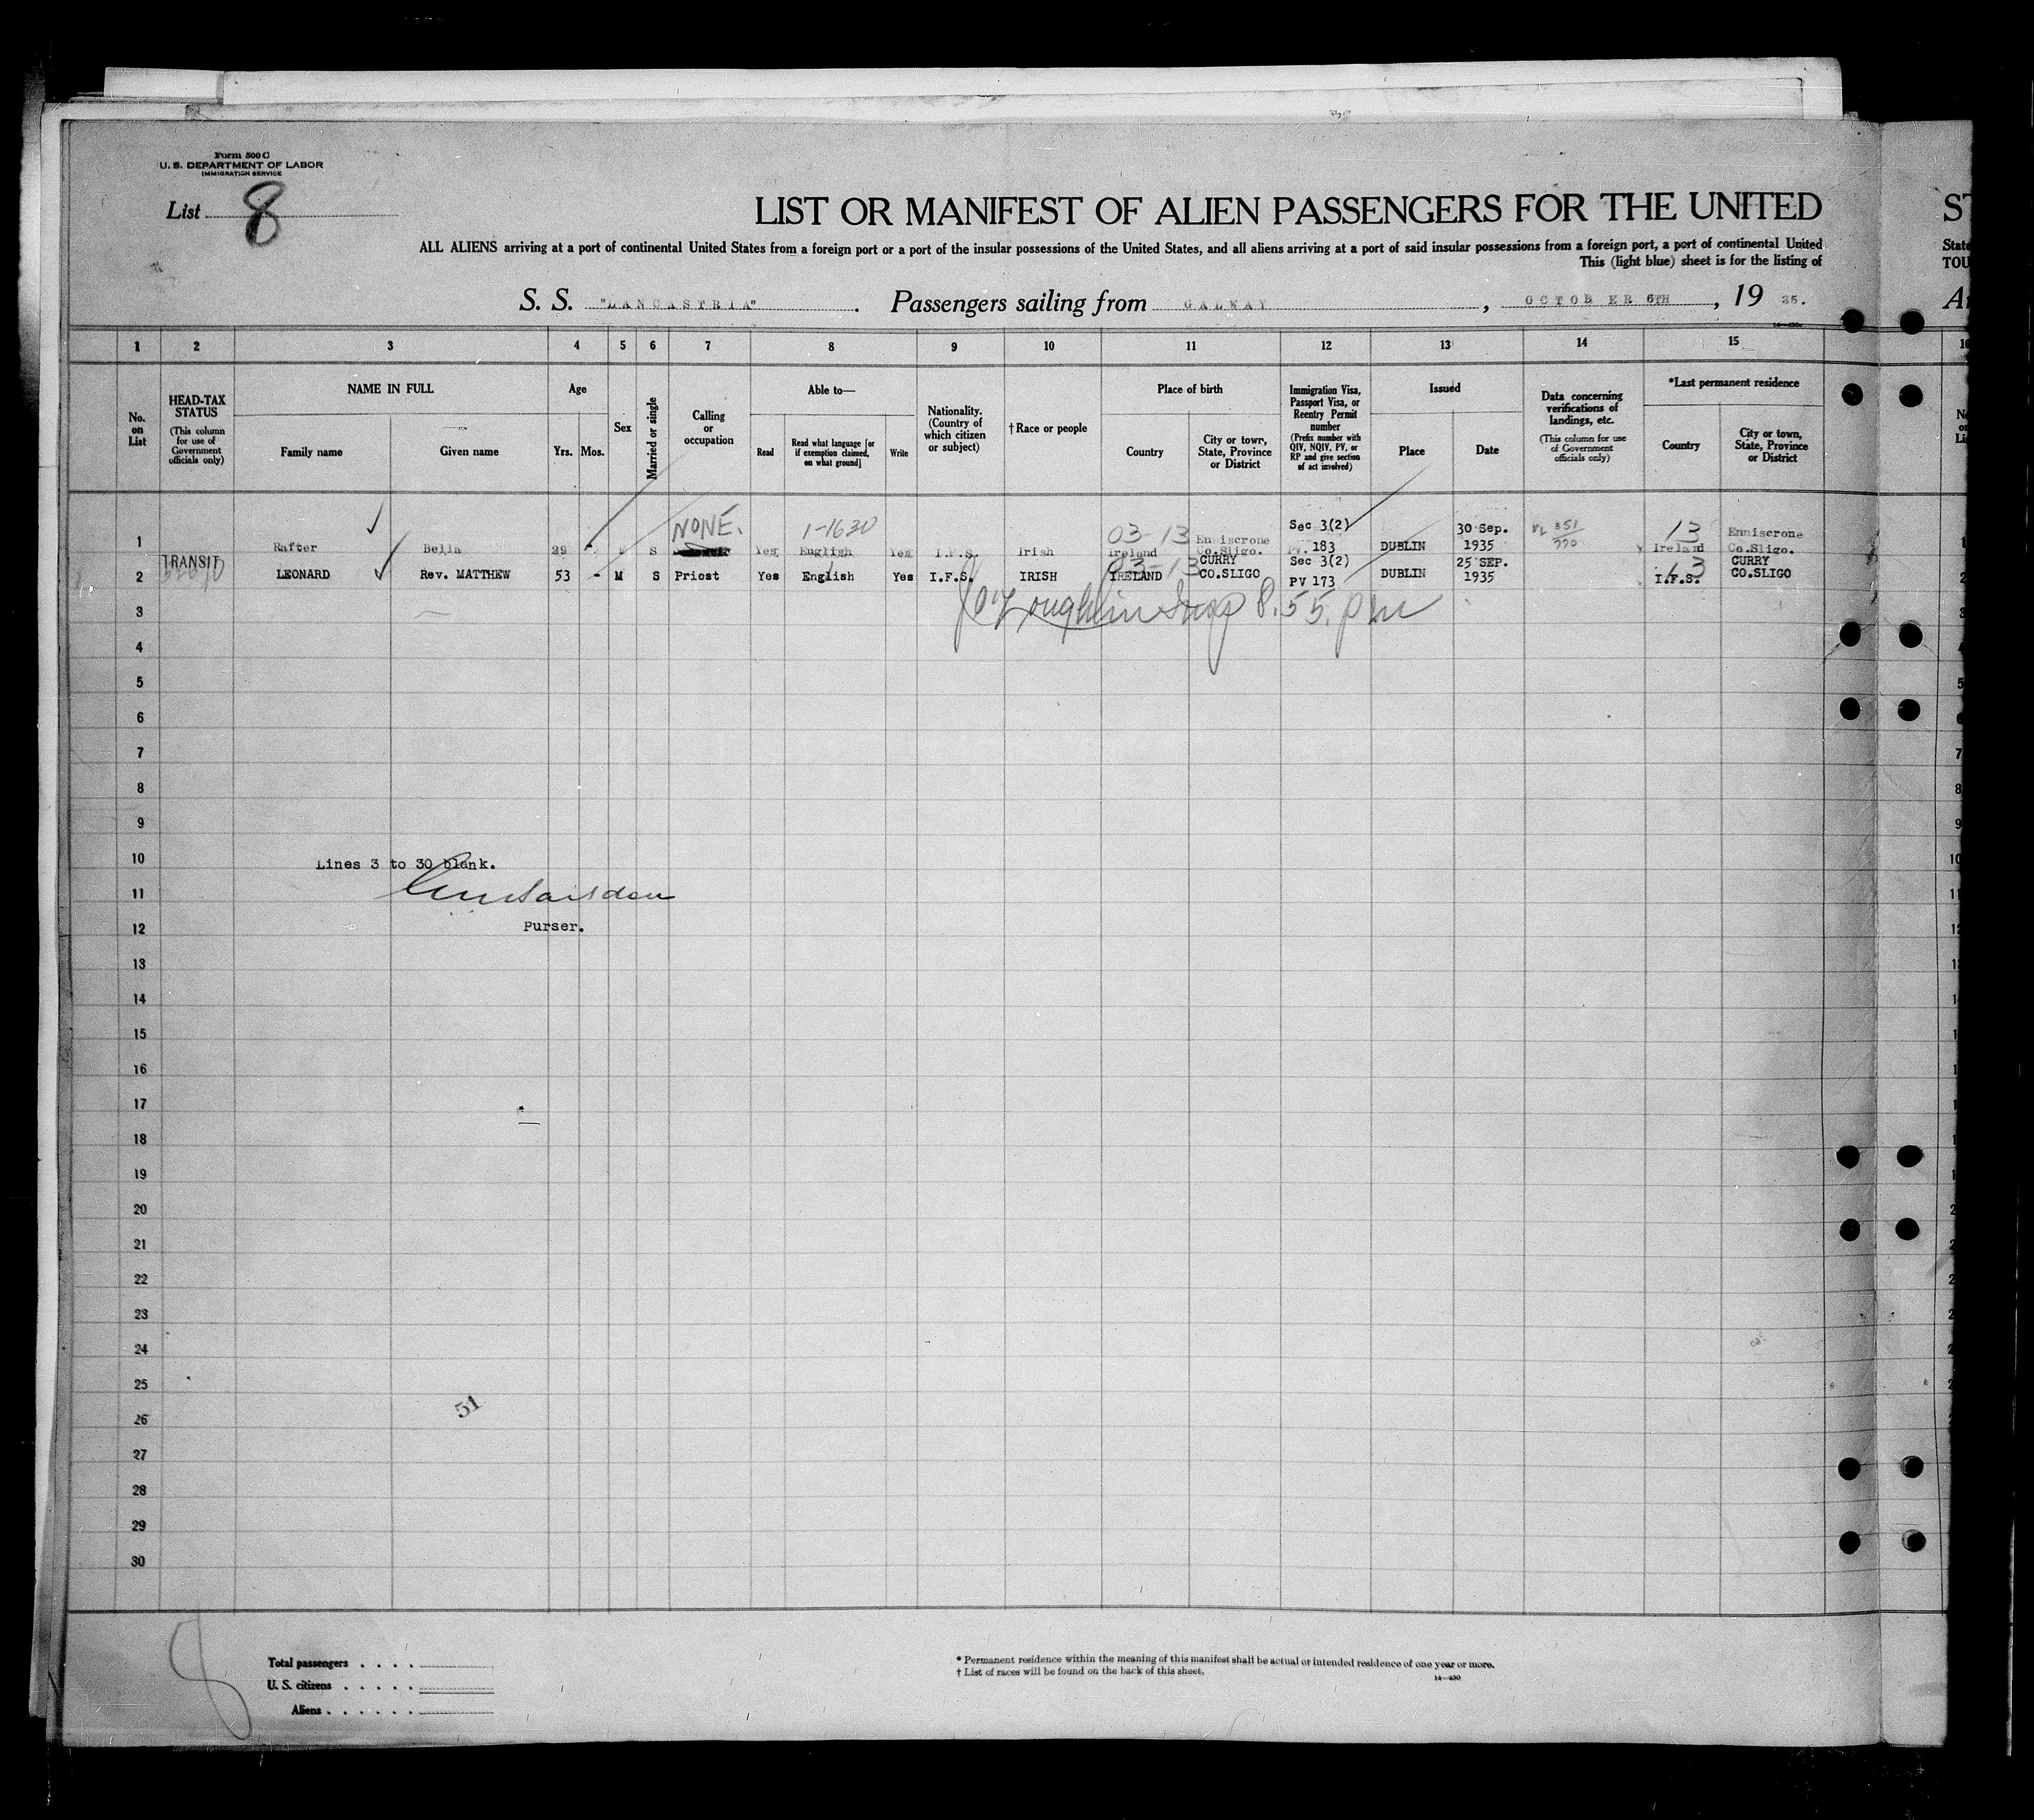 Form 500 C
U. S. DEPARTMENT OF LABOR
IMMIGRATION SERVICE
List 8
LIST OR MANIFEST OF ALIEN PASSENGERS FOR THE UNITED
ALL ALIENS arriving at a port of continental United States from a foreign port or a port of the insular possessions of the United States, and all aliens arriving at a port of said insular possessions from a foreign port, a port of continental United
This (light blue) sheet is for the listing of
S. S. "LANCASTRIA". Passengers sailing from GALWAY, OCTOBER 6TH, 19 35.
1 2 3 4 5 6 7 8 9 10 11 12 13 14 15
No. on List
HEAD-TAX STATUS (This column for use of Government officials only)
NAME IN FULL
Family name Given name
Age
Yrs. Mos.
Sex
Married or single
Calling or occupation
Able to—
Read
Read what language [or if exemption claimed, on what ground]
Write
Nationality. (Country of which citizen or subject)
†Race or people
Place of birth
Country
City or town, State, Province or District
Immigration Visa, Passport Visa, or Reentry Permit number (Prefix number with QIV, NQIV, PV, or RP and give section of act involved)
Issued
Place Date
Data concerning verifications of landings, etc. (This column for use of Government officials only)
*Last permanent residence
Country
City or town, State, Province or District
NONE. 1-1630 03-13 Sec 3(2) 30 Sep. 351 13
1 Rafter Bella 29 - F S Yes English Yes I.F.S. Irish Ireland Enniscrone Co.Sligo. PV. 183 DUBLIN 1935 770 Ireland Enniscrone Co.Sligo.
TRANSIT 03-13 CURRY Sec 3(2) 25 SEP. 13 CURRY
2 LEONARD Rev. MATTHEW 53 - M S Priest Yes English Yes I.F.S. IRISH IRELAND CO.SLIGO PV 173 DUBLIN 1935 I.F.S. CO.SLIGO
3 O'Loughlin Insp 8.55. pm
4
5
6
7
8
9
10 Lines 3 to 30 blank.
11
12 Purser.
13
14
15
16
17
18
19
20
21
22
23
24
25
26 51
27
28
29
30
8
Total passengers
U. S. citizens
Aliens
* Permanent residence within the meaning of this manifest shall be actual or intended residence of one year or more.
† List of races will be found on the back of this sheet.
14—430